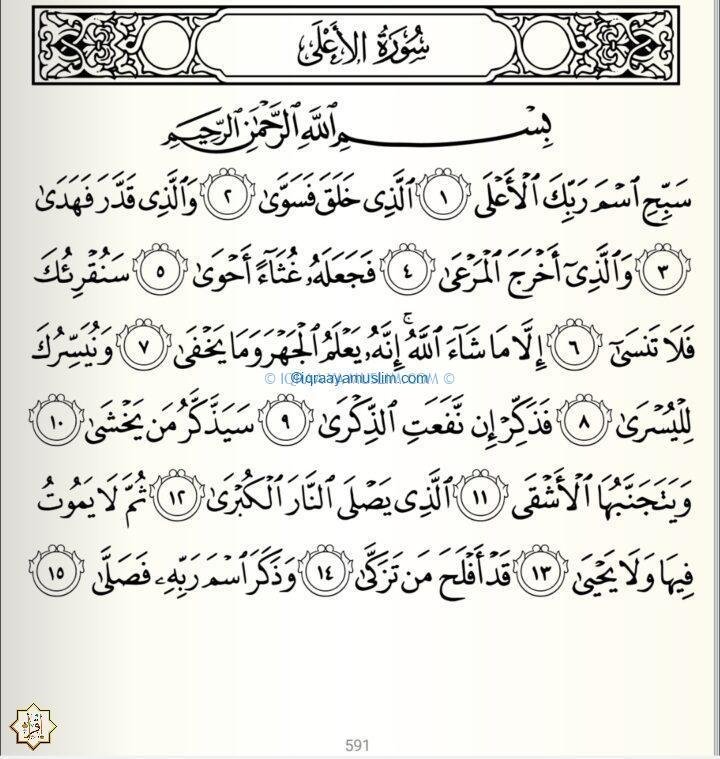 سُورَةُ الأَعْلَى
بِسْمِ اللَّهِ الرَّحْمَٰنِ الرَّحِيمِ
سَبِّحِ اسْمَ رَبِّكَ الْأَعْلَى ١ الَّذِي خَلَقَ فَسَوَّىٰ ٢ وَالَّذِي قَدَّرَ فَهَدَىٰ
٣ وَالَّذِيٓ أَخْرَجَ الْمَرْعَىٰ ٤ فَجَعَلَهُۥ غُثَآءً أَحْوَىٰ ٥ سَنُقْرِئُكَ
فَلَا تَنسَىٰٓ ٦ إِلَّا مَا شَآءَ اللَّهُ ۚ إِنَّهُۥ يَعْلَمُ الْجَهْرَ وَمَا يَخْفَىٰ ٧ وَنُيَسِّرُكَ
@iqraayamuslim.com
لِلْيُسْرَىٰ ٨ فَذَكِّرْ إِن نَّفَعَتِ الذِّكْرَىٰ ٩ سَيَذَّكَّرُ مَن يَخْشَىٰ ١٠
وَيَتَجَنَّبُهَا الْأَشْقَى ١١ الَّذِي يَصْلَى النَّارَ الْكُبْرَىٰ ١٢ ثُمَّ لَا يَمُوتُ
فِيهَا وَلَا يَحْيَىٰ ١٣ قَدْ أَفْلَحَ مَن تَزَكَّىٰ ١٤ وَذَكَرَ اسْمَ رَبِّهِۦ فَصَلَّىٰ ١٥
591